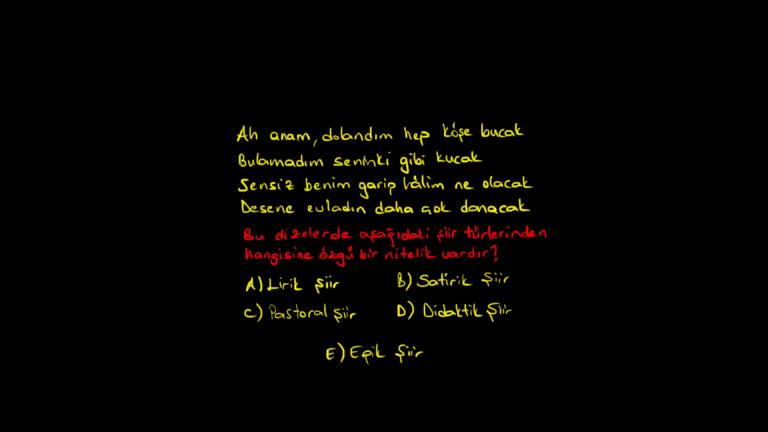 Ah anam, dolandım hep köşe bucak
Bulamadım seninki gibi kucak
Sensiz benim garip hâlim ne olacak
Desene evladın daha çok donacak
Bu dizelerde aşağıdaki şiir türlerinden
hangisine özgü bir nitelik vardır?
A) Lirik Şiir B) Satirik Şiir
C) Pastoral Şiir D) Didaktik Şiir
E) Epik Şiir